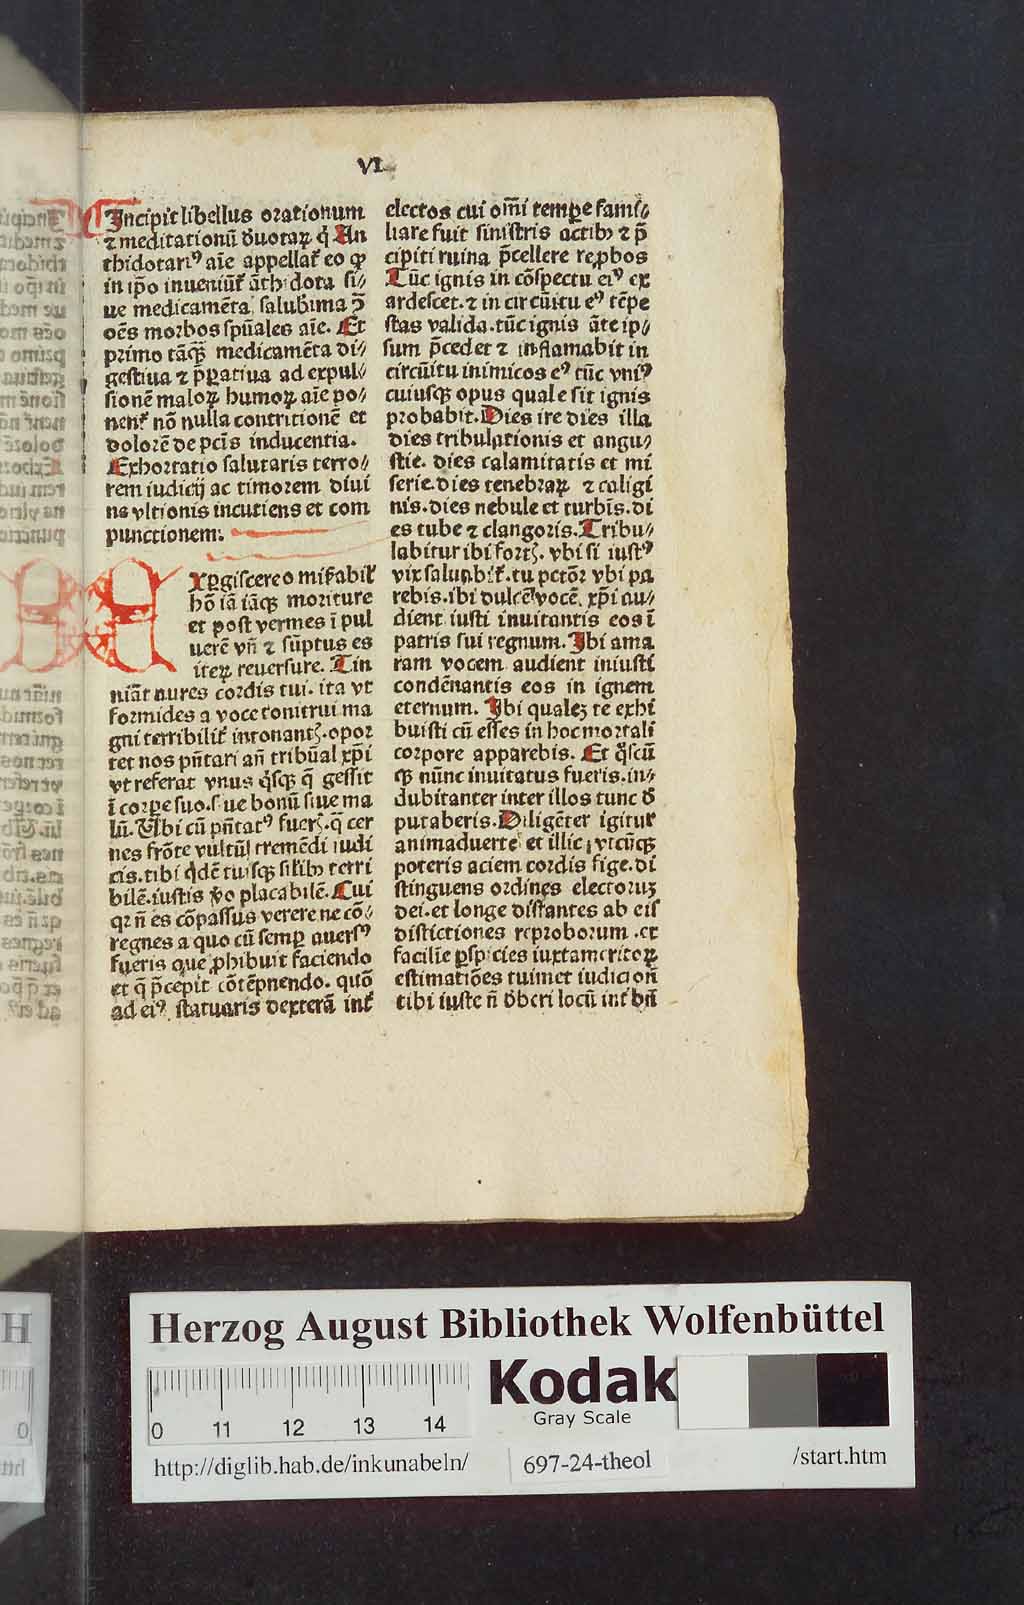 VI
Incipit libellus orationum
⁊ meditationū ꝺuotaꝝ q̇ An
thidotariꝰ aīe appellat᷑ eo ꝙ
in ip̄o inueniūt᷑ āthidota si⸗
ue medicamēta salubima ꝯ̄
oēs morbos spūales aīe. Et
primo tāqꝫ medicamēta di⸗
gestiua ⁊ p̄paratiua ad expul⸗
sionē maloꝝ humoꝝ aīe po⸗
nent᷑ nō nulla contritionē et
dolorē de pctīs inducentia.
Exhortatio salutaris terro⸗
rem iudicij ac timorem diui
ne vltionis incutiens et com
punctionem:
Expgiscere o miẜabil᷑
hō iā iāqꝫ moriture
et post vermes ī pul
uerē vñ ⁊ sūptus es
iteꝝ reuersure. Tin
niāt aures cordis tui. ita vt
formides a voce tonitrui ma
gni terribilit᷑ intonantꝭ. opor
tet nos pñtari añ tribūal xp̄i
vt referat vnus q̇sqꝫ q̄ gessit
ī corpe suo. siue bonū siue ma
lū. Vbi cū pñtatꝰ fuerꝭ. q̄ cer
nes frōte vultū tremēdi iudi
cis. tibi q̇dē tuisqꝫ silibꝫ terri
bilē. iustis ꝟo placabilē. Cui
qꝛ ñ es cōpassus verere ne cō⸗
regnes a quo cū semꝑ auersꝰ
fueris que ꝓhibuit faciendo
et q̄ p̄cepit cōtēpnendo. quō
ad eiꝰ statuaris dexterā int᷑
electos cui om̄i tempe fami⸗
liare fuit sinistris actibꝫ ⁊ p̄
cipiti ruina p̄cellere reꝓbos
Tūc ignis in cōspectu eiꝰ ex
ardescet. ⁊ in circūitu eꝰ tēpe
stas valida. tūc ignis āte ip⸗
sum p̄cedet ⁊ inflamabit in
circūitu inimicos eꝰ tūc vniꝰ
cuiusqꝫ opus quale sit ignis
probabit. Dies ire dies illa
dies tribulationis et angu⸗
stie. dies calamitatis et mi
serie. dies tenebraꝝ ⁊ caligi
nis. dies nebule et turbīs. di
es tube ⁊ clangoris. Tribu⸗
labitur ibi fortꝭ. vbi si iustꝰ
vix saluabit᷑. tu pctōr vbi pa
rebis. ibi dulcē vocē xp̄i au⸗
dient iusti inuitantis eos ī
patris sui regnum. Ibi ama
ram vocem audient iniusti
condēnantis eos in ignem
eternum. Ibi qualeꝫ te exhi
buisti cū esses in hoc mortali
corpore apparebis. Et q̇scū
qꝫ nūnc inuitatus fueris. in⸗
dubitanter inter illos tunc ꝺ
putaberis. Diligēter igitur
animaduerte et illic vtcūqꝫ
poteris aciem cordis fige. di
stinguens ordines electoruꝫ
dei. et longe distantes ab eis
distictiones reproborum. ex
faciliē ꝑspicies iuxta meritoꝝ
estimatiōes tuimet iudicioñ
tibi iuste ñ ꝺberi locū int᷑ bñ
Herzog August Bibliothek Wolfenbüttel
0 11 12 13 14
Kodak
Gray Scale
http://diglib.hab.de/inkunabeln/
697-24-theol
/start.htm